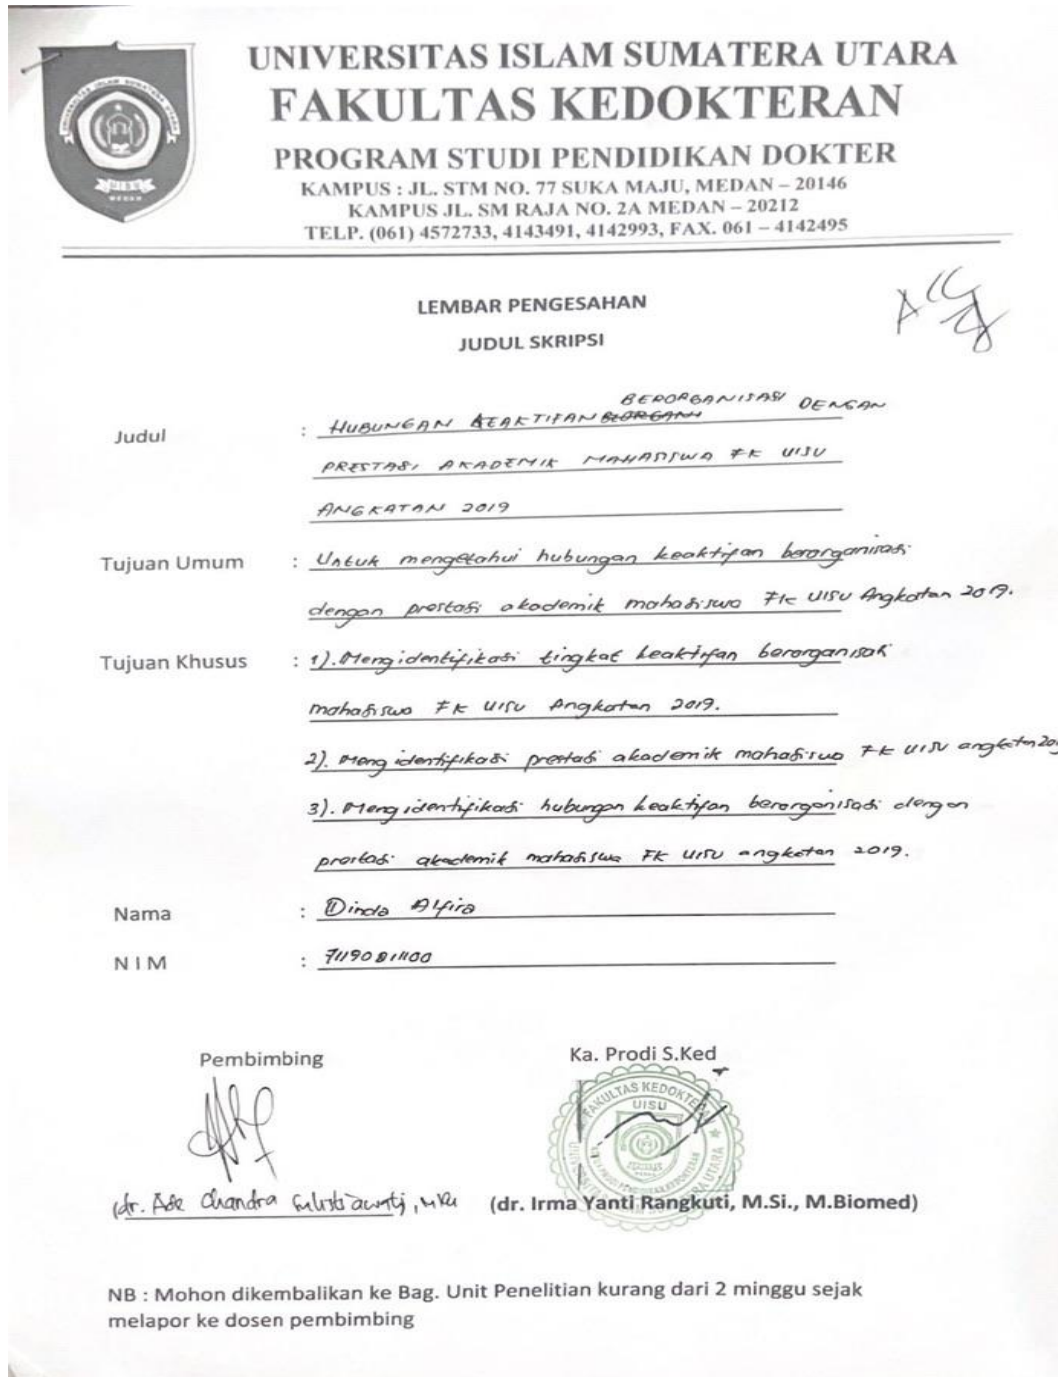 UNIVERSITAS ISLAM SUMATERA UTARA
FAKULTAS KEDOKTERAN
PROGRAM STUDI PENDIDIKAN DOKTER
KAMPUS : JL. STM NO. 77 SUKA MAJU, MEDAN – 20146
KAMPUS JL. SM RAJA NO. 2A MEDAN – 20212
TELP. (061) 4572733, 4143491, 4142993, FAX. 061 – 4142495
UNIVERSITAS ISLAM SUMATERA UTARA
UISU
MEDAN
ACC
LEMBAR PENGESAHAN
JUDUL SKRIPSI
Judul : HUBUNGAN KEAKTIFAN BERORGANISASI DENGAN
PRESTASI AKADEMIK MAHASISWA FK UISU
ANGKATAN 2019
Tujuan Umum : Untuk mengetahui hubungan keaktifan berorganisasi
dengan prestasi akademik mahasiswa FK UISU Angkatan 2019.
Tujuan Khusus : 1). Mengidentifikasi tingkat keaktifan berorganisasi
mahasiswa FK UISU Angkatan 2019.
2). Mengidentifikasi prestasi akademik mahasiswa FK UISU angkatan
3). Mengidentifikasi hubungan keaktifan berorganisasi dengan
prestasi akademik mahasiswa FK UISU angkatan 2019.
Nama : Dinda Alfira
NIM : 71190811100
Pembimbing
Ka. Prodi S.Ked
FAKULTAS KEDOKTERAN
UISU
(dr. Ade Chandra
(dr. Irma Yanti Rangkuti, M.Si., M.Biomed)
NB : Mohon dikembalikan ke Bag. Unit Penelitian kurang dari 2 minggu sejak
melapor ke dosen pembimbing